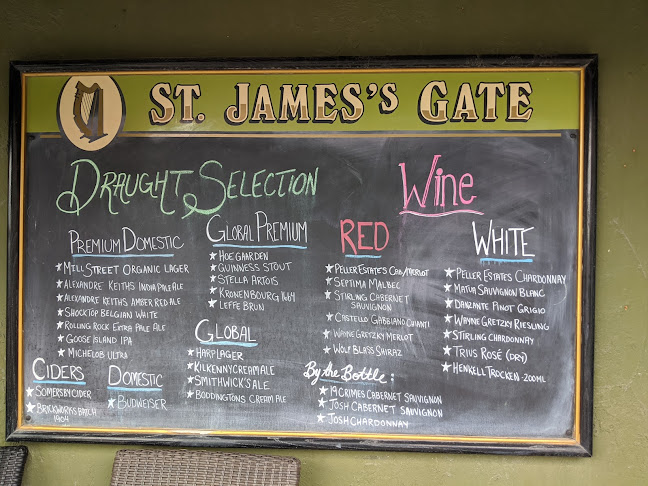 ST. JAMES'S GATE
DRAUGHT SELECTION
PREMIUM DOMESTIC
★ MILL STREET ORGANIC LAGER
★ ALEXANDRE KEITHS INDIA PALE ALE
★ ALEXANDRE KEITHS AMBER RED ALE
★ SHOCKTOP BELGIAN WHITE
★ ROLLING ROCK EXTRA PALE ALE
★ GOOSE ISLAND IPA
★ MICHELOB ULTRA
CIDERS
★ SOMERSBY CIDER
★ BRICKWORKS BATCH
1904
DOMESTIC
★ BUDWEISER
GLOBAL PREMIUM
★ HOEGAARDEN
★ GUINNESS STOUT
★ STELLA ARTOIS
★ KRONENBOURG 1664
★ LEFFE BRUN
GLOBAL
★ HARP LAGER
★ KILKENNY CREAM ALE
★ SMITHWICK'S ALE
★ BODDINGTONS CREAM ALE
Wine
RED
★ PELLER ESTATES CAB/MERLOT
★ SEPTIMA MALBEC
★ STIRLING CABERNET
SAUVIGNON
★ CASTELLO GABBIANO CHIANTI
★ WAYNE GRETZKY MERLOT
★ WOLF BLASS SHIRAZ
By the Bottle:
★ 19 CRIMES CABERNET SAUVIGNON
★ JOSH CABERNET SAUVIGNON
★ JOSH CHARDONNAY
WHITE
★ PELLER ESTATES CHARDONNAY
★ MATUA SAUVIGNON BLANC
★ DANZANTE PINOT GRIGIO
★ WAYNE GRETZKY RIESLING
★ STIRLING CHARDONNAY
★ TRIUS ROSÉ (DRY)
★ HENKELL TROCKEN -200ML